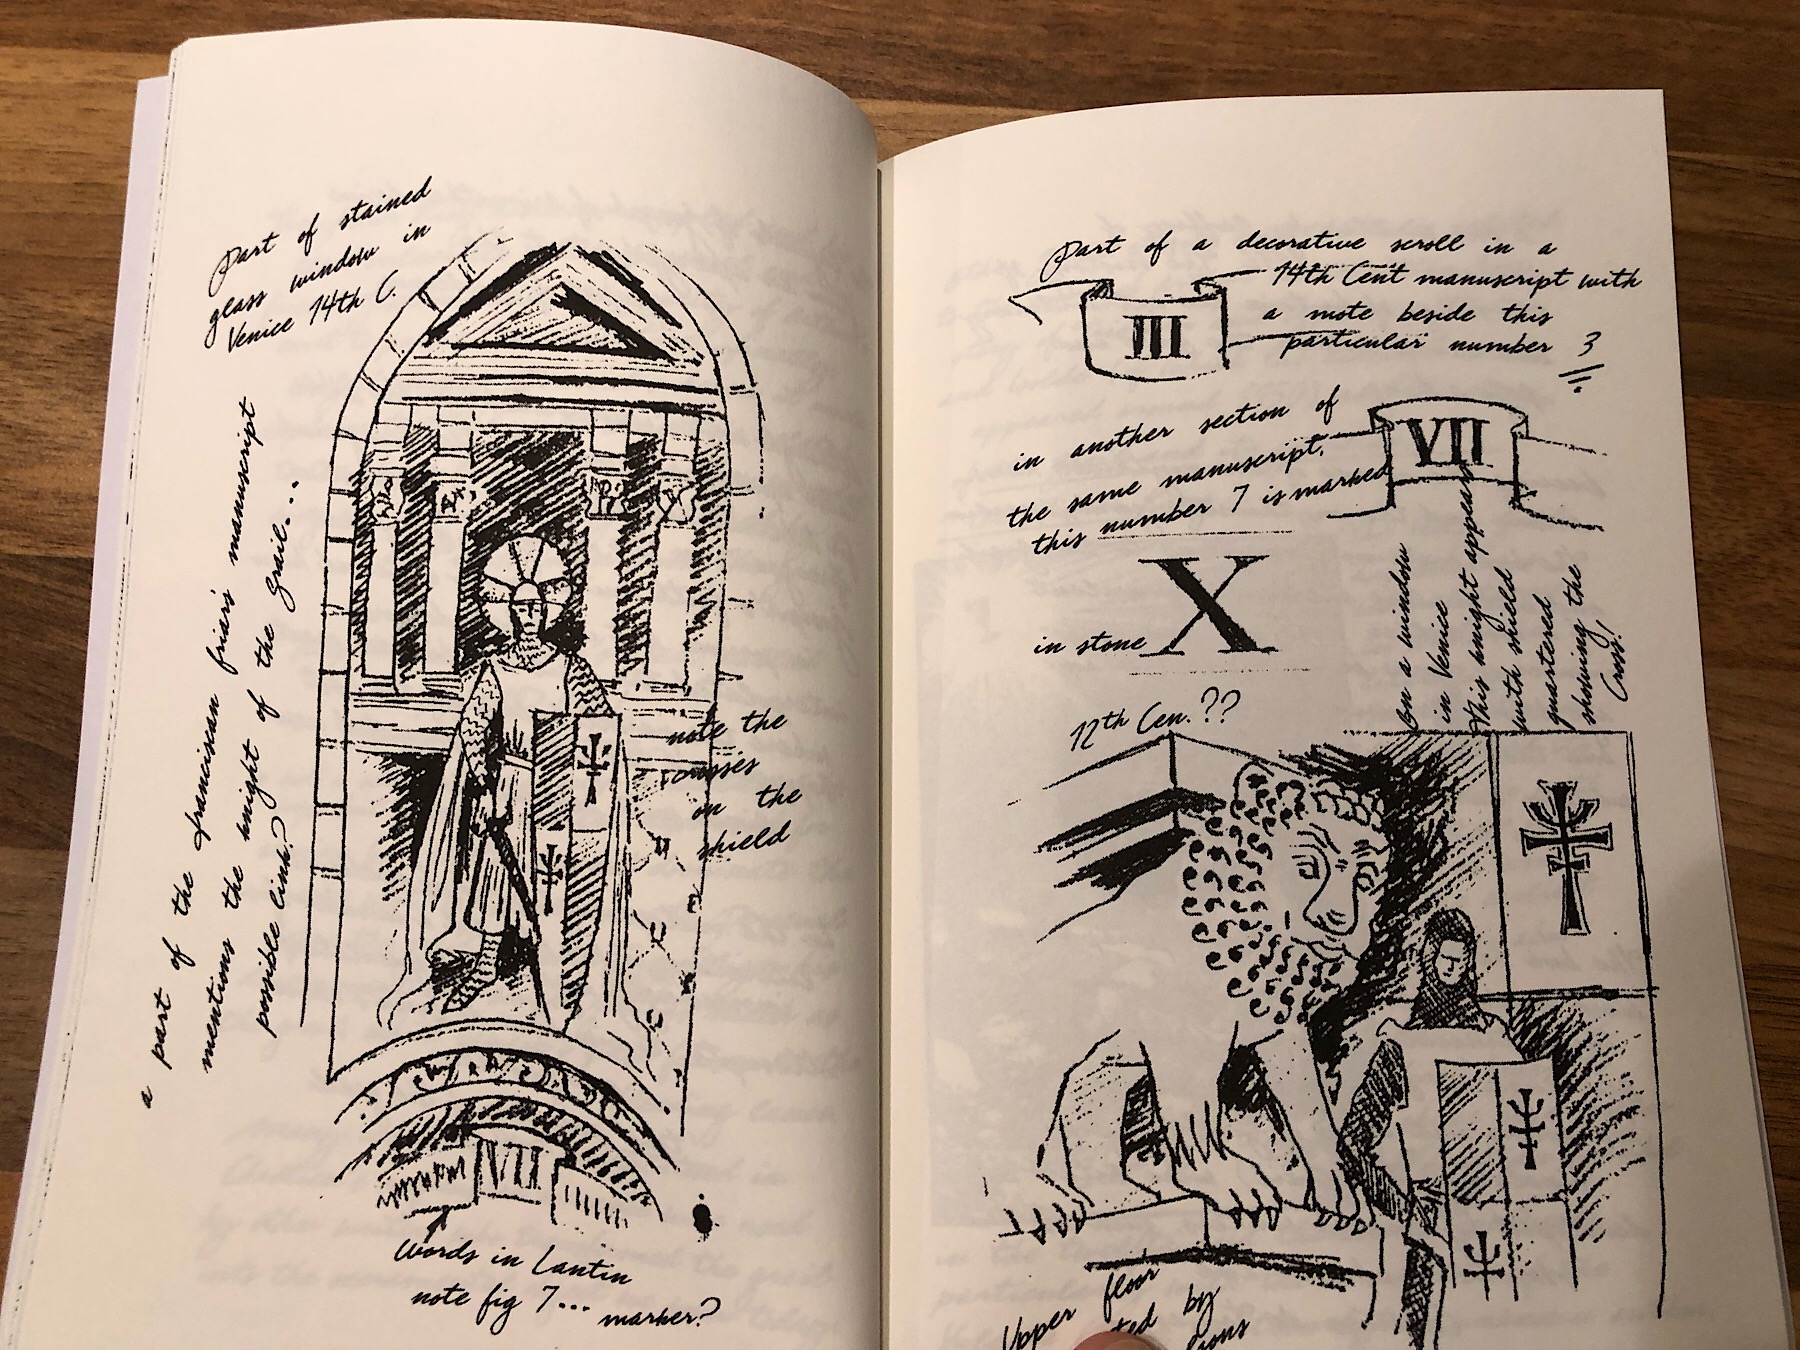 Part of stained
glass window in
Venice 14th C.
a part of the franciscan friar's manuscript
mentions the knight of the grail...
possible link?
note the
crosses
on the
shield
VII
Words in Lantin
note fig 7... marker?
Part of a decorative scroll in a
14th Cent manuscript with
a note beside this
particular number 3
III
in another section of
the same manuscript,
this number 7 is marked
VII
X
in stone
12th Cen.??
On a window
in Venice
this knight appears
with shield
quartered
showing the
Cross!
Upper floor
by